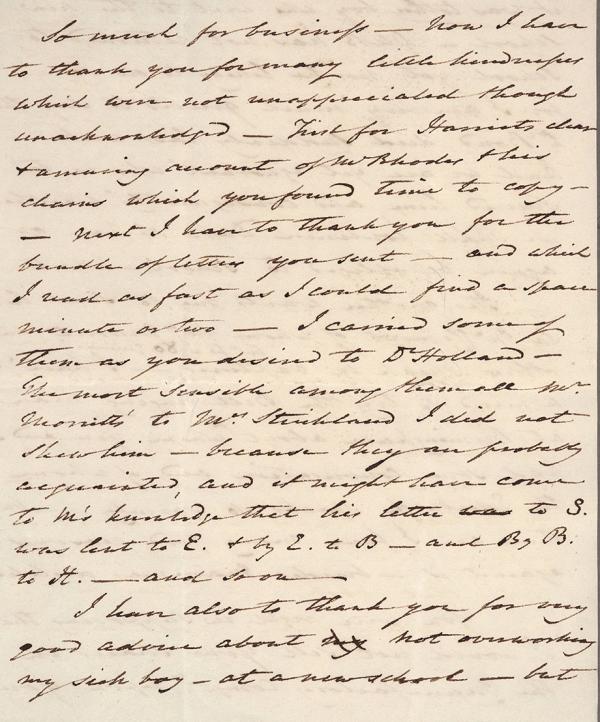 So much for business — Now I have
to thank you for many little kindnesses
which were not unappreciated though
unacknowledged — First for Harriets clear
& amusing account of Mr Rhodes & his
chains which you found time to copy —
— next I have to thank you for the
bundle of letters you sent — and which
I read as fast as I could find a spare
minute or two — I carried some of
them as you desired to Dr Holland —
The most sensible among them all Mr
Morritts' to Mrs Strickland I did not
shew him — because they are probably
acquainted, and it might have come
to M's knowledge that his letter was to S.
was lent to E. & by E. to B — and By B.
to H. — and so on —
I have also to thank you for very
good advice about my not overworking
my sick boy — at a new school — but